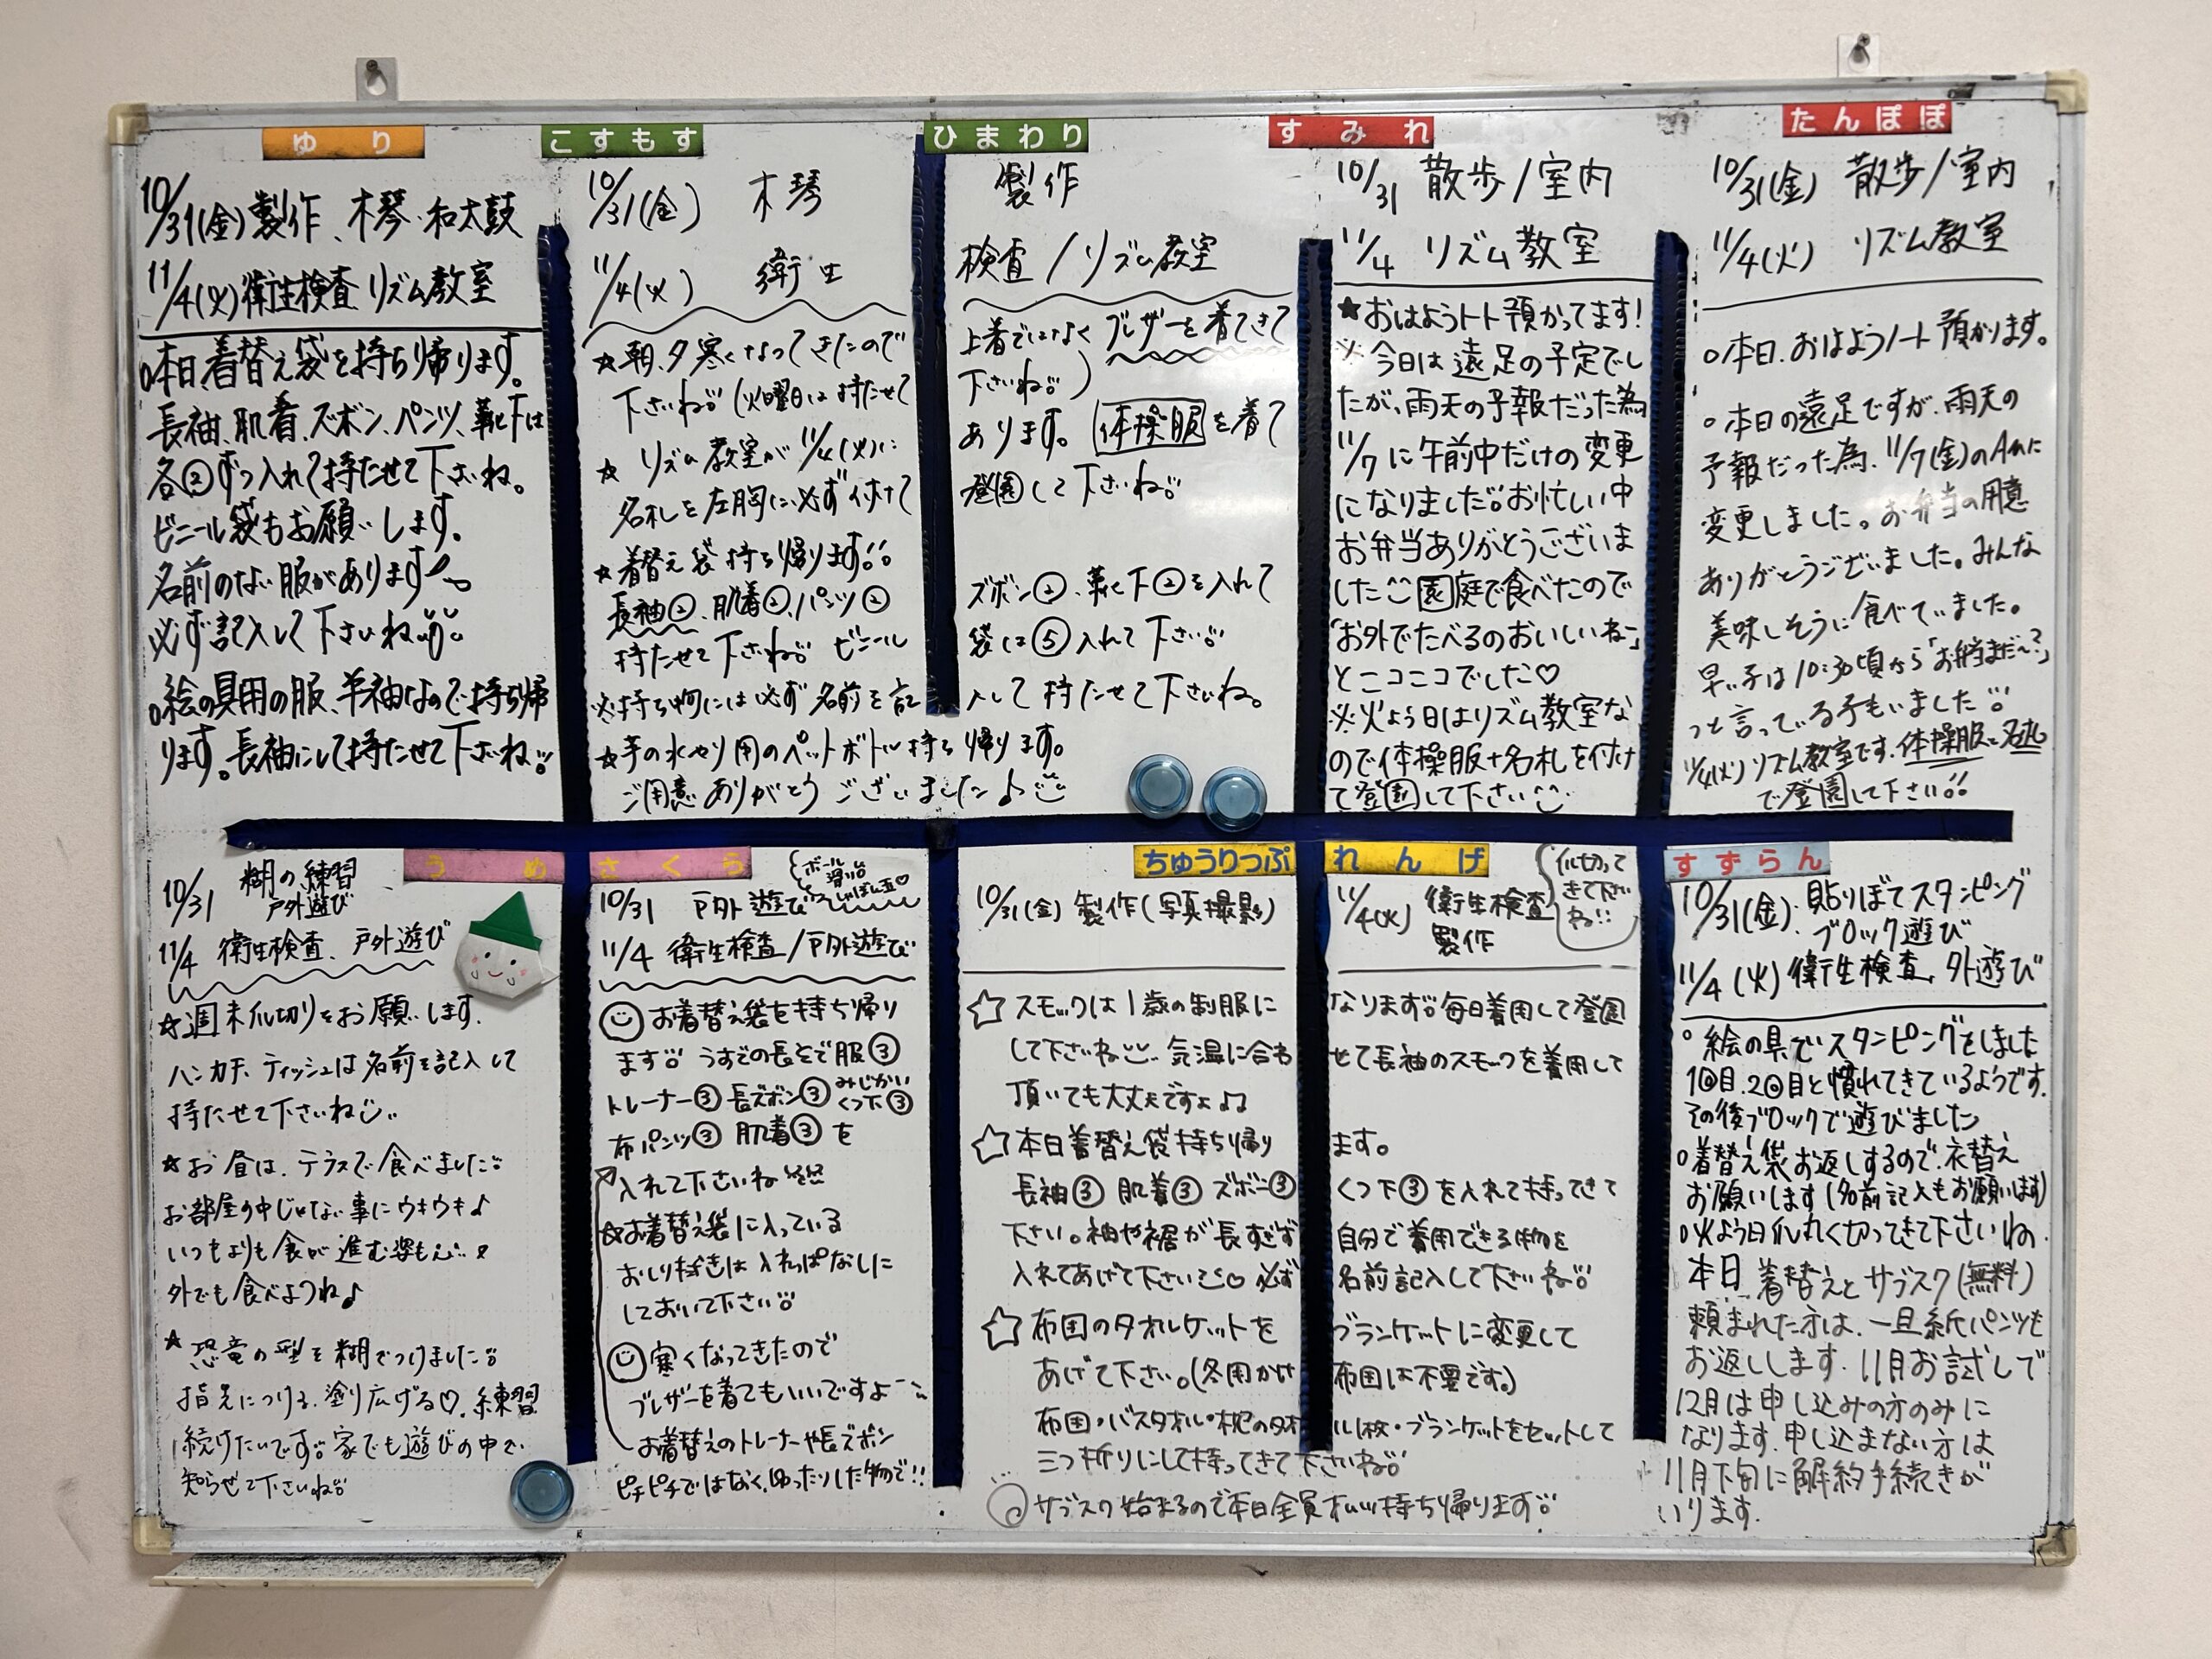 ゆり
10/31(金)製作、木琴・和太鼓
11/4(火)衛生検査 リズム教室
○本日、着替え袋を持ち帰ります。
長袖、肌着、ズボン、パンツ、靴下は
各②ずつ入れて持たせて下さいね。
ビニール袋もお願いします。
名前のない服があります
必ず記入して下さいね
○絵の具用の服、半袖なので持ち帰
ります。長袖にして持たせて下さいね
こすもす ひまわり
10/31(金) 木琴 製作
11/4(火) 衛生 検査/リズム教室
★朝、夕寒くなってきたので 上着ではなく ブレザーを着てきて
下さいね (火曜日は持たせて 下さいね)
★ リズム教室が11/4(火)に あります。 体操服を着て
名札を左胸に必ず付けて 登園して下さいね
★着替え袋持ち帰ります
長袖②、肌着②、パンツ② ズボン②、靴下②を入れて
持たせて下さいね ビニール 袋は⑤入れて下さい
※持ち物には必ず名前を記 入して持たせて下さいね。
★芋の水やり用のペットボトル持ち帰ります。
ご用意ありがとうございました♪
すみれ
10/31 散歩/室内
11/4 リズム教室
★おはようノート預かってます!
※今日は遠足の予定でし
たが、雨天の予報だった為
11/7に午前中だけの変更
になりました。お忙しい中
お弁当ありがとうございま
した 園庭で食べたので
「お外でたべるのおいしいねー」
とニコニコでした♡
※火よう日はリズム教室な
ので体操服+名札を付け
て登園して下さい
たんぽぽ
10/31(金) 散歩/室内
11/4(火) リズム教室
○本日、おはようノート預かります。
○本日の遠足ですが、雨天の
予報だった為、11/7(金)のAmに
変更しました。お弁当の用意
ありがとうございました。みんな
美味しそうに食べていました。
早い子は10:30頃から「お弁当まだ〜?」
っと言っている子もいました
11/4(火)リズム教室です。体操服と名札
で登園して下さい
うめ
10/31 糊の練習
戸外遊び
11/4 衛生検査、戸外遊び
★週末爪切りをお願いします。
ハンカチ、ティッシュは名前を記入して
持たせて下さいね
★お昼は、テラスで食べました
お部屋の中じゃない事にウキウキ♪
いつもよりも食が進む姿も
外でも食べようね♪
★恐竜の型を糊でつけました
指先につける、塗り広げる♡、練習
続けたいです。家でも遊びの中で
知らせて下さいね
さくら
10/31 戸外遊び
11/4 衛生検査/戸外遊び
お着替え袋を持ち帰り
ます うすでの長そで服③
トレーナー③ 長ズボン③ みじかい
くつ下③
布パンツ③ 肌着③ を
入れて下さいね
☆お着替え袋に入っている
おしり拭きは入れっぱなしに
しておいて下さい
寒くなってきたので
ブレザーを着てもいいですよ〜
お着替えのトレーナーや長ズボン
ピチピチではなく、ゆったりした物で!!
ちゅうりっぷ れんげ
10/31(金) 製作(写真撮影) 11/4(火) 衛生検査
製作
爪切って
きて下さい
ね!!
☆スモックは1歳の制服に なります 毎日着用して登園
して下さいね 気温に合わ せて長袖のスモックを着用して
頂いても大丈夫ですよ
☆本日着替え袋持ち帰り ます。
長袖③ 肌着③ ズボン③ くつ下③を入れて持ってきて
下さい。袖や裾が長すぎず 自分で着用できる物を
入れてあげて下さい 必ず 名前記入して下さいね
☆布団のタオルケットを ブランケットに変更して
あげて下さい。(冬用かけ 布団は不要です。)
布団・バスタオル・枕のタオ ル1枚・ブランケットをセットして
三つ折りにして持ってきて下さいね
サブスク始まるので本日全員オムツ持ち帰ります
すずらん
10/31(金)、貼りぼてスタンピング
ブロック遊び
11/4(火)衛生検査、外遊び
○絵の具でスタンピングをしました
1回目、2回目と慣れてきているようです。
その後ブロックで遊びました
○着替え袋お返しするので、衣替え
お願いします(名前記入もお願います)
○火よう日爪丸く切ってきて下さいね。
本日 着替えとサブスク(無料)
頼まれた方は、一旦紙パンツも
お返しします。11月お試しで
12月は申し込みの方のみに
なります。申し込まない方は
11月下旬に解約手続きが
いります。